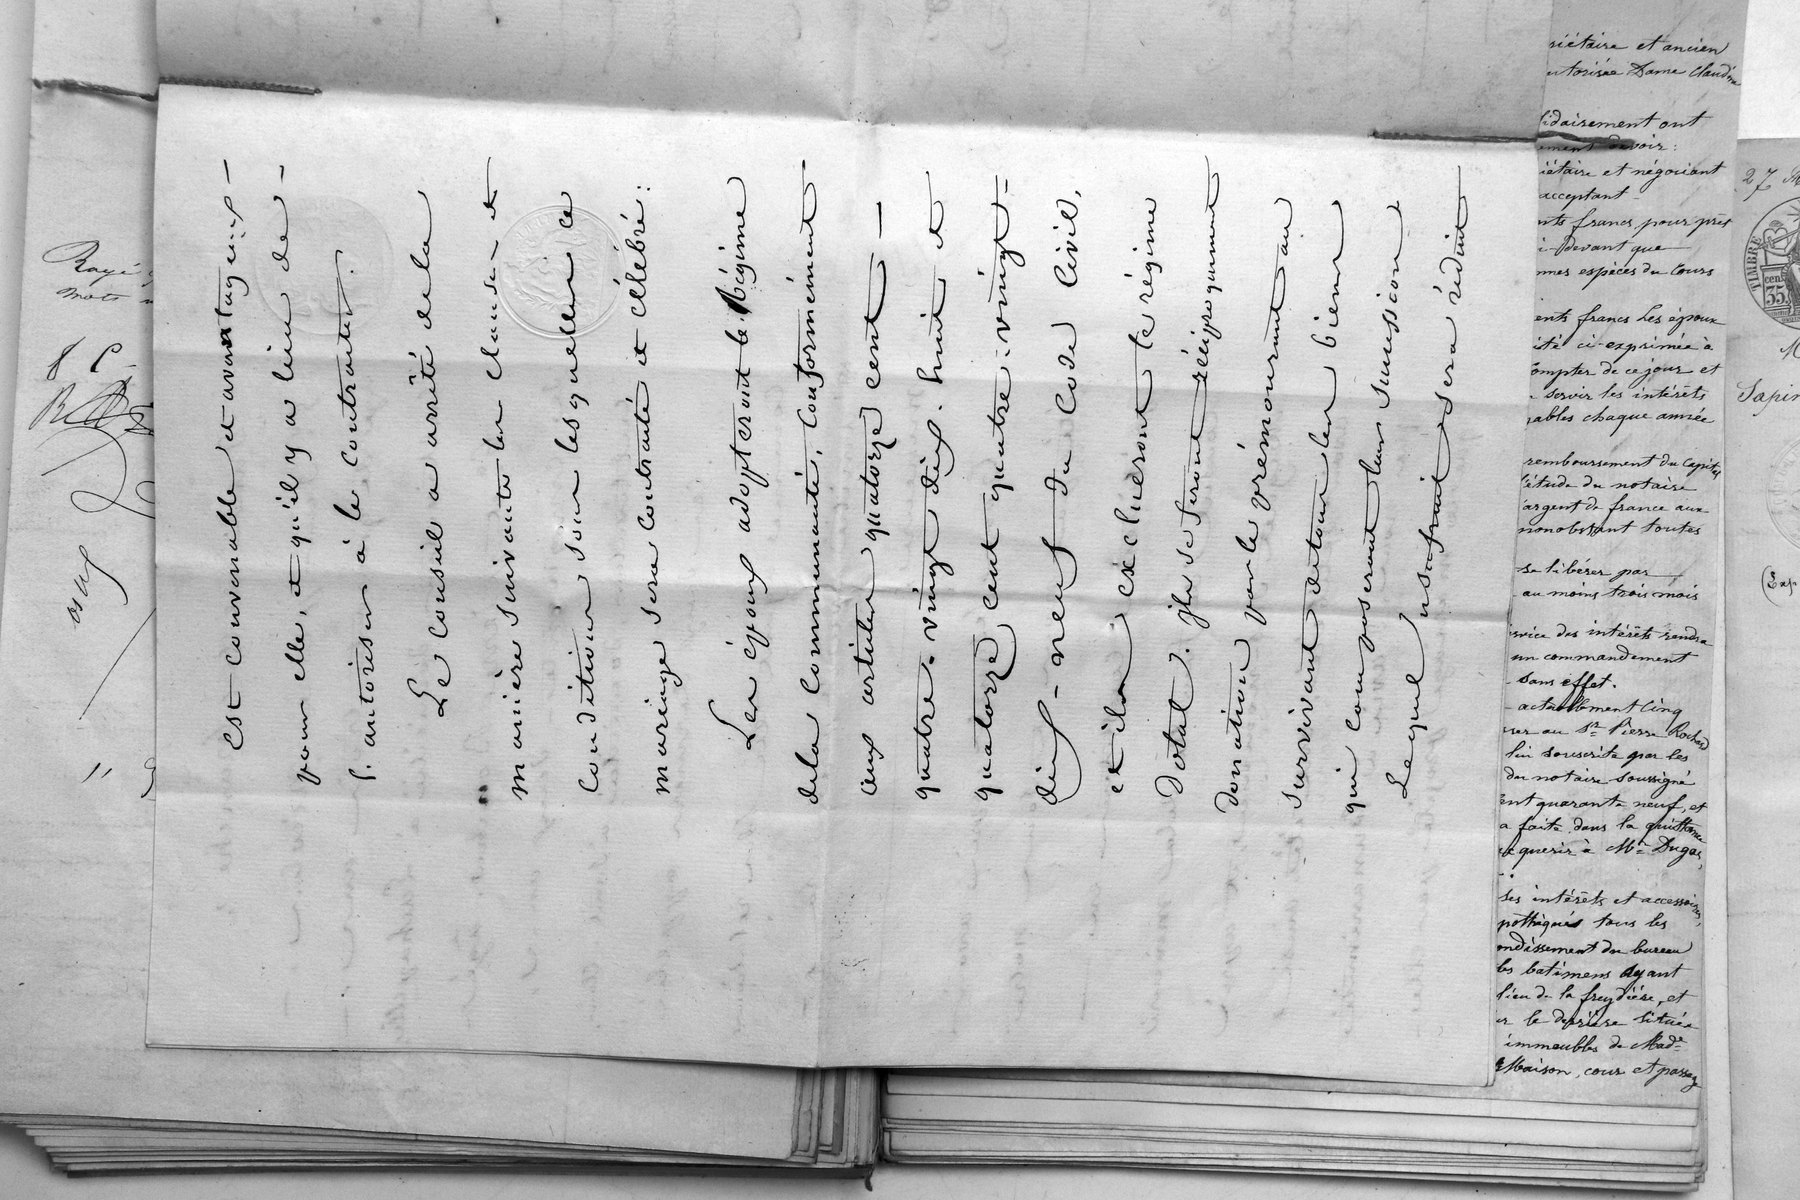 est convenable et avantageux -
pour elle, et qu'il y a lieu de -
l'autoriser à le contracter.
Le conseil a arrêté de la
manière suivante les clauses et
conditions sous lesquelles ce
mariage sera contracté et célébré:
Les époux adopteront le Régime
de la Communauté, Conformément
aux articles quatorze cent -
quatre-vingt dix-huit et
quatorze cent quatre-vingt-
dix-neuf du Code Civil,
et ils excluront le régime
Dotal. Ils se feront réciproquement
donation par le prémourant au
survivant de tous les biens
qui composeront leurs succession
Lequel usufruit sera réduit
Rayé
mots
riétaire et ancien
utorisée Dame Claudine
lidairement ont
ement devoir:
iétaire et négociant
acceptant
nts francs pour prêt
i-devant que
mes espèces du Cours
ents francs Les époux
ité ci-exprimée à
ompter de ce jour et
servir les intérêts
ables chaque année
remboursement du Capital
l'étude du notaire
argent de france aux
nonobstant toutes
se libérer par
au moins trois mois
rvice des intérêts rendra
un commandement
sans effet.
actuellement Cinq
ser au Sr Pierre Rochard
lui souscrite par les
du notaire soussigné
ent quarante neuf, et
a faite dans la quittance
querir à Mr Dugas,
ses intérêts et accessoires,
pothéqués tous les
ondissement du bureau
les batimens ayant
lieu de la freydière, et
er le derrière située
immeubles de Made
Maison, cour et passage
27
TIMBRE
35
cen
Sapin